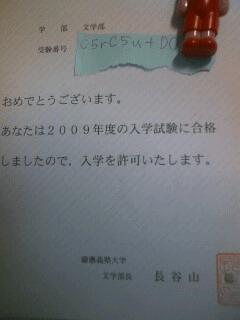 学部 文学部
受験番号 C5rC5u+DO
おめでとうございます。
あなたは2009年度の入学試験に合格
しましたので，入学を許可いたします。
慶應義塾大学
文学部長 長谷山